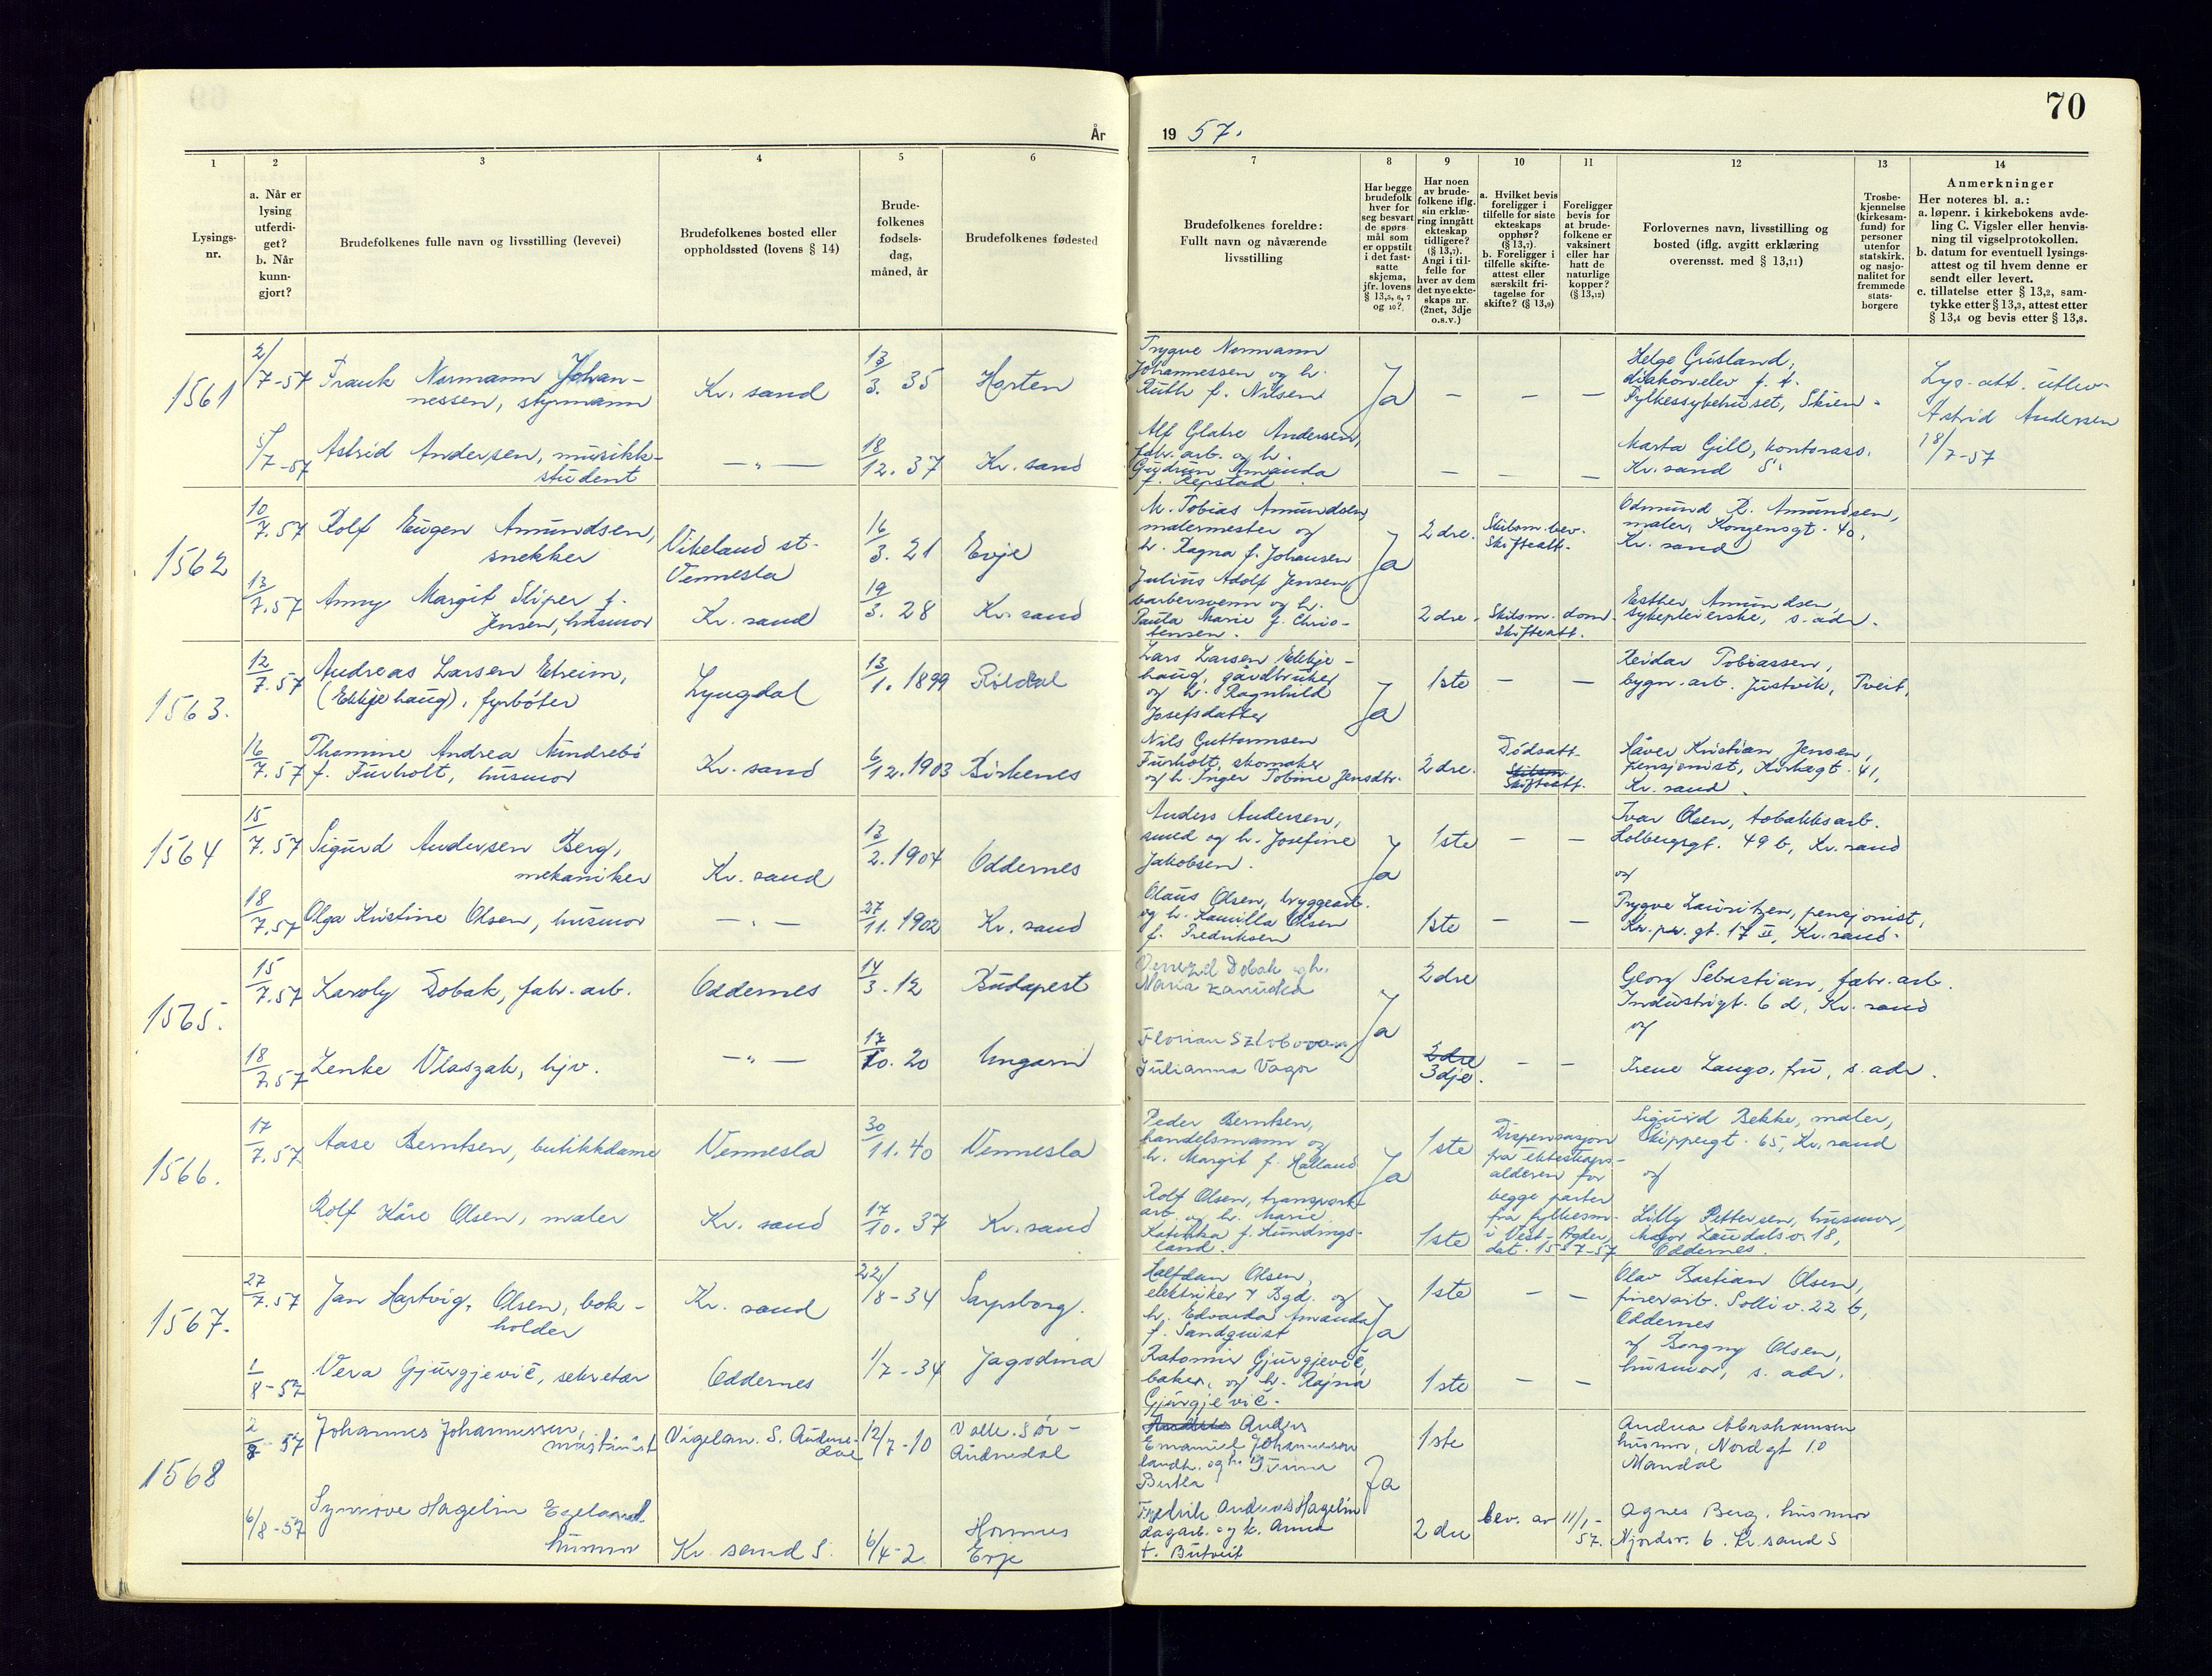 70
År
19 57.
1
2
3
4
5
6
7
8
9
10
11
12
13
14
Lysings-
nr.
a. Når er
lysing
utferdi-
get?
b. Når
kunn-
gjort?
Brudefolkenes fulle navn og livsstilling (levevei)
Brudefolkenes bosted eller
oppholdssted (lovens § 14)
Brude-
folkenes
fødsels-
dag,
måned, år
Brudefolkenes fødested
Brudefolkenes foreldre:
Fullt navn og nåværende
livsstilling
Har begge
brudefolk
hver for
seg besvart
de spørs-
mål som
er oppstilt
i det fast-
satte
skjema,
jfr. lovens
§ 13,5, 6, 7
og 10?
Har noen
av brude-
folkene iflg.
sin erklæ-
ring inngått
ekteskap
tidligere?
(§ 13,7).
Angi i til-
felle for
hver av dem
det nye ekte-
skaps nr.
(2net, 3dje
o.s.v.)
a. Hvilket bevis
foreligger i
tilfelle for siste
ekteskaps
opphør?
(§ 13,7).
b. Foreligger i
tilfelle skifte-
attest eller
særskilt fri-
tagelse for
skifte? (§ 13,9)
Foreligger
bevis for
at brude-
folkene er
vaksinert
eller har
hatt de
naturlige
kopper?
(§ 13,12)
Forlovernes navn, livsstilling og
bosted (iflg. avgitt erklæring
overensst. med § 13,11)
Trosbe-
kjennelse
(kirkesam-
fund) for
personer
utenfor
statskirk.
og nasjo-
nalitet for
fremmede
stats-
borgere
Anmerkninger
Her noteres bl. a.:
a. løpenr. i kirkebokens avde-
ling C. Vigsler eller henvis-
ning til vigselprotokollen.
b. datum for eventuell lysings-
attest og til hvem denne er
sendt eller levert.
c. tillatelse etter § 13,2, sam-
tykke etter § 13,3, attest etter
§ 13,4 og bevis etter § 13,8.
1561
2/7-57
Frank Normann Johan-
nessen, styrmann
Kr. sand
13/3. 35
Horten
Trygve Normann
Johannessen og h.
Ruth f. Nilsen
Ja
–
–
–
Helge Grisland,
diakonelev f. t.
Fylkessykehuset, Skien.
Lys. att. utlev.
Astrid Andersen
18/7-57
5/7-57
Astrid Andersen, musikk-
student
– " –
18/12. 37
Kr. sand
Alf Glatre Andersen,
fabr. arb. og h.
Gudrun Amanda
f. Repstad.
–
–
–
Marta Gill, kontorass.
Kr. sand S.
1562
10/7.57
Rolf Eugen Amundsen,
snekker
Vikeland st.
Vennesla
16/3. 21
Evje
M. Tobias Amundsen
malermester og
h. Ragna f. Johansen
Ja
2 dre.
Skilsm. bev.
Skifteatt.
Odmund R. Amundsen,
maler, Kongensgt. 40,
Kr. sand
13/7.57
Anny Margit Sliper f.
Jensen, husmor
Kr. sand
19/3. 28
Kr. sand
Julius Adolf Jensen
barbersvenn og h.
Paula Marie f. Chris-
tensen.
2 dre.
Skilsm. dom.
Skifteatt.
Esther Amundsen,
sykepleierske, s. adr.
1563.
12/7.57
Andreas Larsen Etreim,
(Ekkjehaug), fyrbøter
Lyngdal
13/1. 1899
Røldal
Lars Larsen Ekkje-
haug, gårdbruker
og h. Ragnhild
Josefsdatter
Ja
1ste
–
–
Reidar Tobiassen,
bygn. arb. Justvik, Tveit.
16/7.57
Thomine Andrea Mindrebø
f. Furholt, husmor
Kr. sand
6/12. 1903
Birkenes
Nils Guttormsen
Furholt, skomaker
og h. Inger Tobine Jensdtr.
2 dre.
Dødsatt.
Skilsm
Skifteatt.
Håver Kristian Jensen,
pensjonist, Kirkegt. 41,
Kr. sand.
1564
15/7.57
Sigurd Andersen Berg,
mekaniker
Kr. sand
13/2. 1904
Oddernes
Anders Andersen,
smed og h. Josefine
Jakobsen.
Ja
1ste
–
–
Ivar Olsen, tobakksarb.
Holbergsgt. 49 b, Kr. sand
og
18/7.57
Olga Kristine Olsen, husmor
– " –
27/11. 1902
Kr. sand
Olaus Olsen, bryggearb.
og h. Kamilla Olsen
f. Fredriksen
1ste
–
–
Trygve Lauritzen, pensjonist,
Kr. pr. gt. 17 II, Kr. sand.
1565.
15/7.57
Karoly Dobak, fabr. arb.
Oddernes
14/3. 12
Budapest
Dobak og h.
Maria
Ja
2 dre
Georg Sebastian, fabr. arb.
Industrigt. 6 d, Kr. sand
og
18/7.57
Lenke Vlaszak, hjv.
– " –
17/10. 20
Ungarn
Florian
Julianna Vagor
2 dre
3dje.
–
–
Irene Lango, fru, s. adr.
1566.
17/7.57
Aase Berntsen, butikkdame
Vennesla
30/11. 40
Vennesla
Peder Berntsen,
handelsmann og
h. Margit f. Halland
Ja
1ste
Dispensasjon
fra ekteskaps-
alderen for
begge parter
fra fylkesm.
i Vest-Agder,
dat. 15/7-57
Sigurd Bekke, maler,
Skippergt. 65, Kr. sand
og
Rolf Kåre Olsen, maler
Kr. sand
17/10. 37
Kr. sand
Rolf Olsen, transport-
arb. og h. Marie
Katinka f. Hundings-
land.
1ste
Lilly Pettersen, husmor,
Major Laudals v. 18,
Oddernes.
1567.
27/7.57
Jan Hartvig Olsen, bok-
holder
Kr. sand
22/8-34
Sarpsborg.
Halfdan Olsen,
elektriker, Bgd. og
h. Edvarda Amanda
f. Sandquist
Ja
1ste
–
–
Olav Bastian Olsen,
finerarb. Solliv. 22 b,
Oddernes
1/8-57
Vera Gjurgjevič, sekretær
Oddernes
1/7-34
Jagodina
Ratomir Gjurgjevič,
baker, og h. Rajna
Gjurgjevič.
1ste
–
–
og Borgny Olsen,
husmor, s. adr.
1568
2/8 57
Johannes Johannessen,
maskinist
Vigelan. S. Audne-
dal
12/7-10
Valle. Sør-
Audnedal
Anders
Emanuel Johannessen
landh. og h.
Berta
Ja
1ste
Andrea Abrahamsen
husmor, Nordgt 10
Mandal
6/8-57
Synnøve Hagelin Egeland.
husmor
Kr. sand S.
6/4-2
Hornnes
Evje
Fredrik Andreas Hagelin
dagarb. og h. Anna
f. Butveit
2 dre
bev. av 11/1-
57.
Agnes Berg, husmor
Njordsv. 6. Kr. sand S